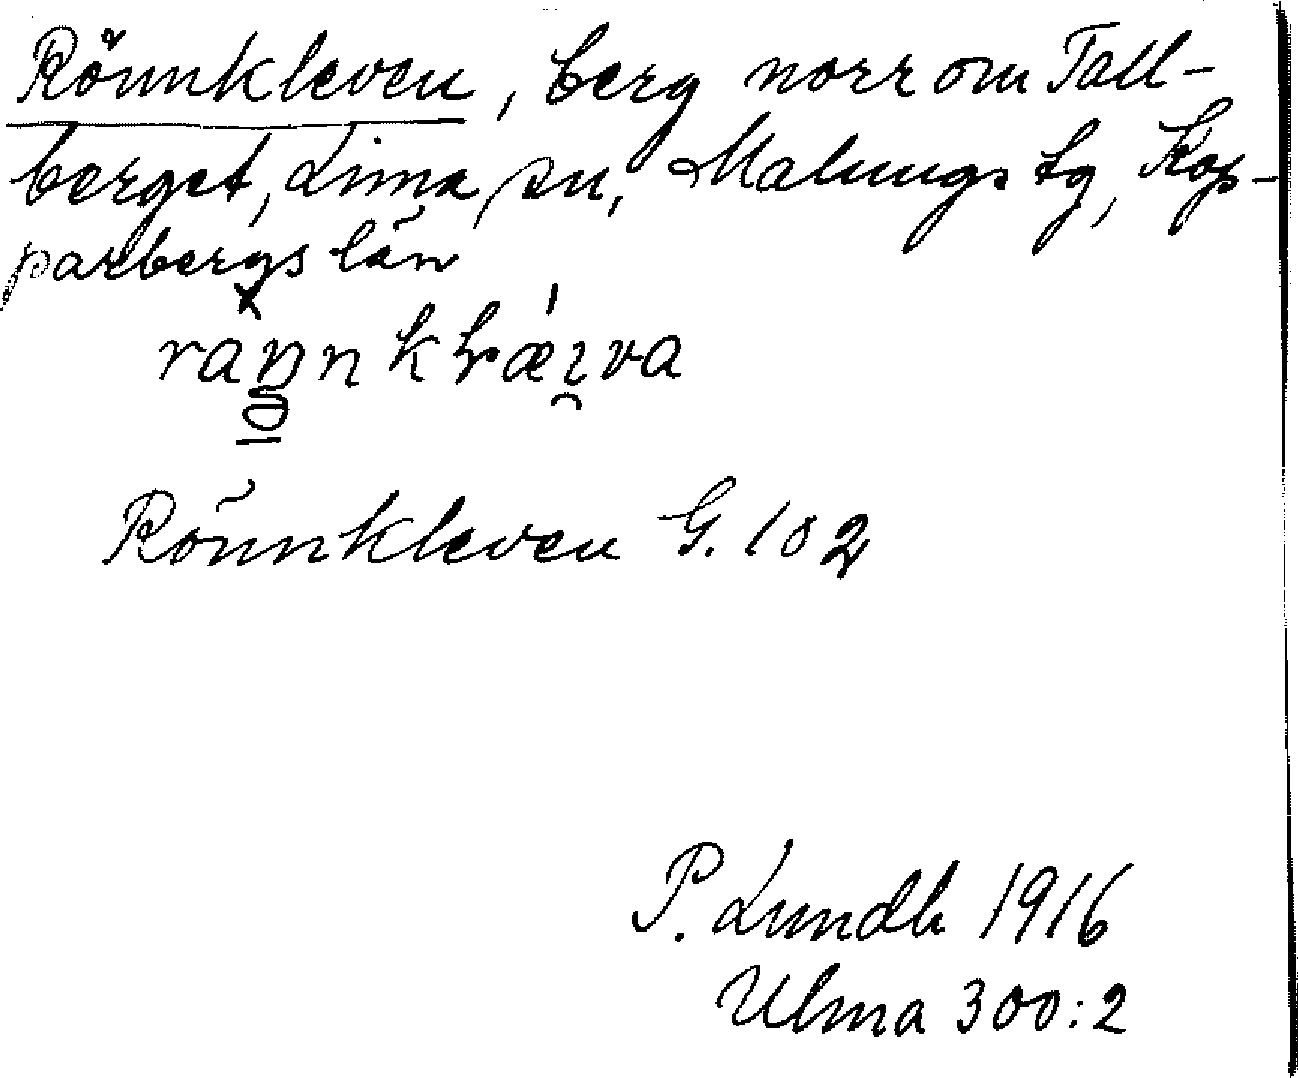 Rönnkleven, berg norr om Tall-
berget, Lima sn, Malungs tg, Kop-
parbergs län
Rönnkleven G. 102
P. Lundh 1916
Ulma 300:2